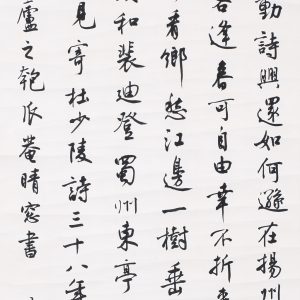 動詩興還如何遜在揚州
客逢春可自由幸不折
看鄉愁江邊一樹垂
和裴迪登蜀州東亭
見寄杜少陵詩三十八年
廬之匏瓜菴晴窓書